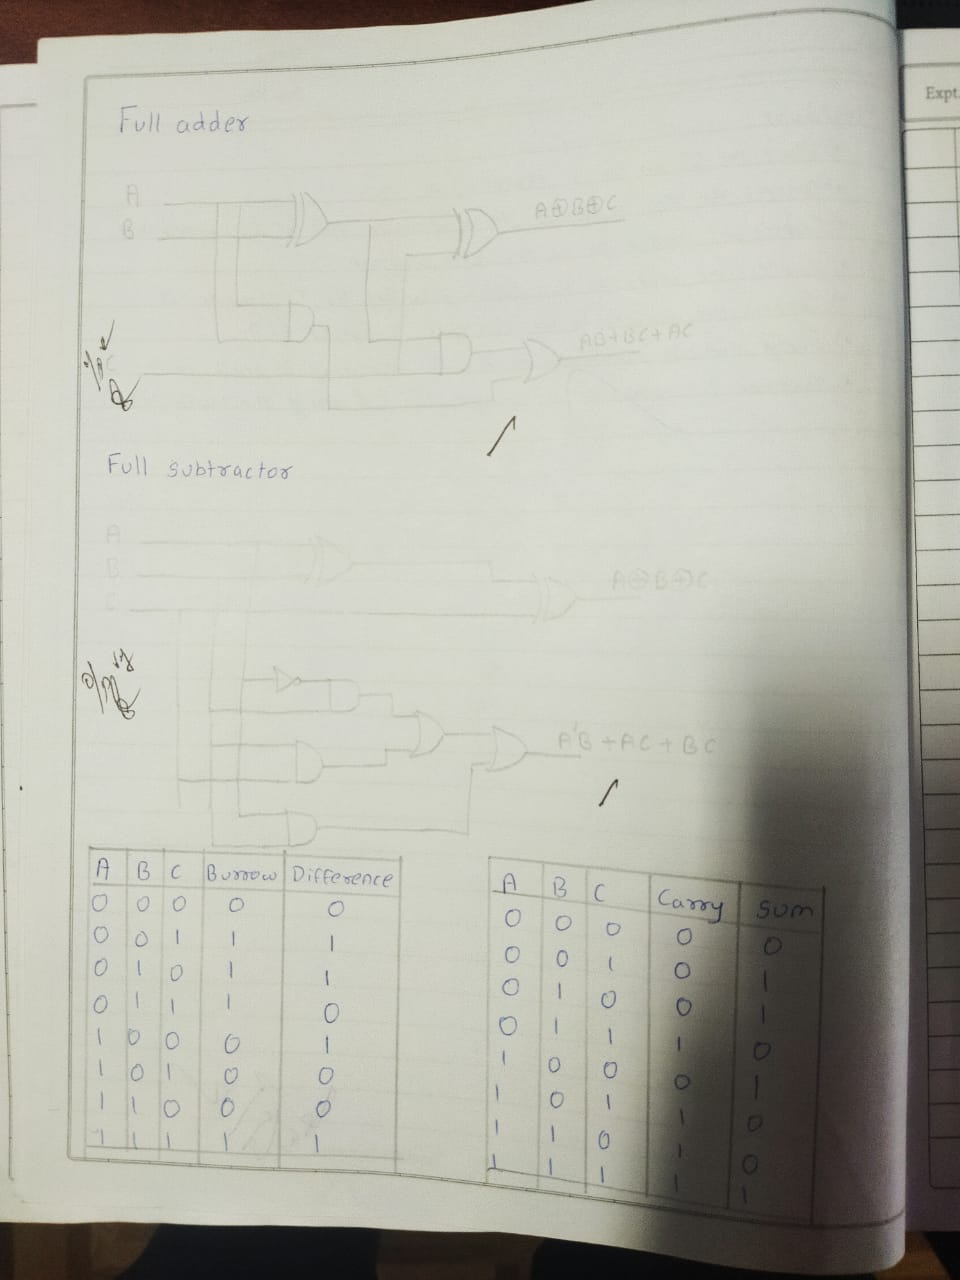 Expt.
Full adder
A
B
A⊕B⊕C
AB+BC+AC
C
Full subtractor
A
B
C
A⊕B⊕C
A'B + AC + BC
A B C Burrow Difference
0 0 0 0 0
0 0 1 1 1
0 1 0 1 1
0 1 1 1 0
1 0 0 0 1
1 0 1 0 0
1 1 0 0 0
1 1 1 1 1
A B C Carry Sum
0 0 0 0 0
0 0 1 0 1
0 1 0 0 1
0 1 1 1 0
1 0 0 0 1
1 0 1 1 0
1 1 0 1 0
1 1 1 1 1